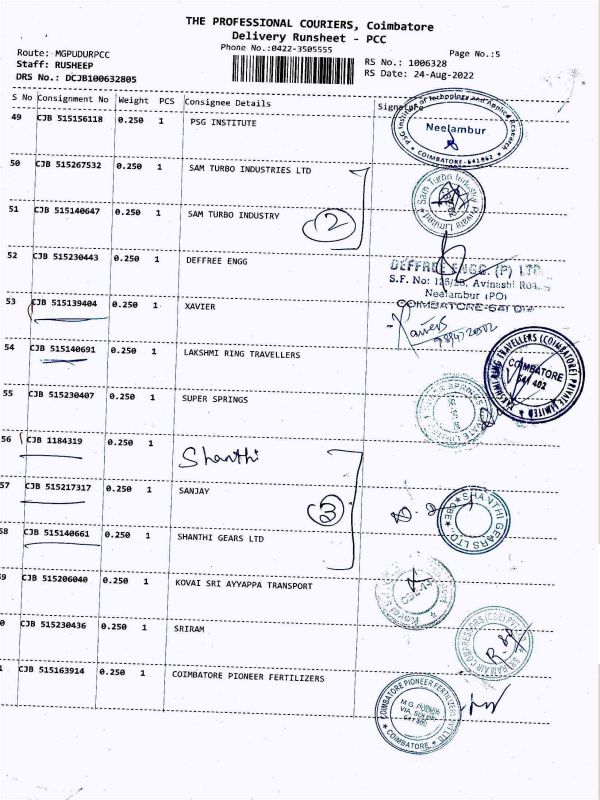 THE PROFESSIONAL COURIERS, Coimbatore
Delivery Runsheet - PCC
Phone No.:0422-3505555
Page No.:5
Route: MGPUDURPCC
Staff: RUSHEEP
DRS No.: DCJB100632805
RS No.: 1006328
RS Date: 24-Aug-2022
S No Consignment No Weight PCS Consignee Details Signature
49 CJB 515156118 0.250 1 PSG INSTITUTE
PSG Institute of Technology and Applied Research
Neelambur
COIMBATORE-641062
50 CJB 515267532 0.250 1 SAM TURBO INDUSTRIES LTD
Sam Turbo Industry Private Limited
51 CJB 515140647 0.250 1 SAM TURBO INDUSTRY
2
52 CJB 515230443 0.250 1 DEFFREE ENGG
DEFFREE ENGG. (P) LTD
S.F. No: Avinashi
Neelambur (PO)
53 CJB 515139404 0.250 1 XAVIER
Xavier
54 CJB 515140691 0.250 1 LAKSHMI RING TRAVELLERS
LAKSHMI RING TRAVELLERS (COIMBATORE) PRIVATE LIMITED
COIMBATORE
641 402
55 CJB 515230407 0.250 1 SUPER SPRINGS
SPRINGS
56 CJB 1184319 0.250 1 Shanthi
57 CJB 515217317 0.250 1 SANJAY
3
SHANTHI GEARS LTD.
58 CJB 515140661 0.250 1 SHANTHI GEARS LTD
59 CJB 515206040 0.250 1 KOVAI SRI AYYAPPA TRANSPORT
0 CJB 515230436 0.250 1 SRIRAM
1 CJB 515163914 0.250 1 COIMBATORE PIONEER FERTILIZERS
COIMBATORE PIONEER FERTILIZERS
M.G. PUDUR
COIMBATORE